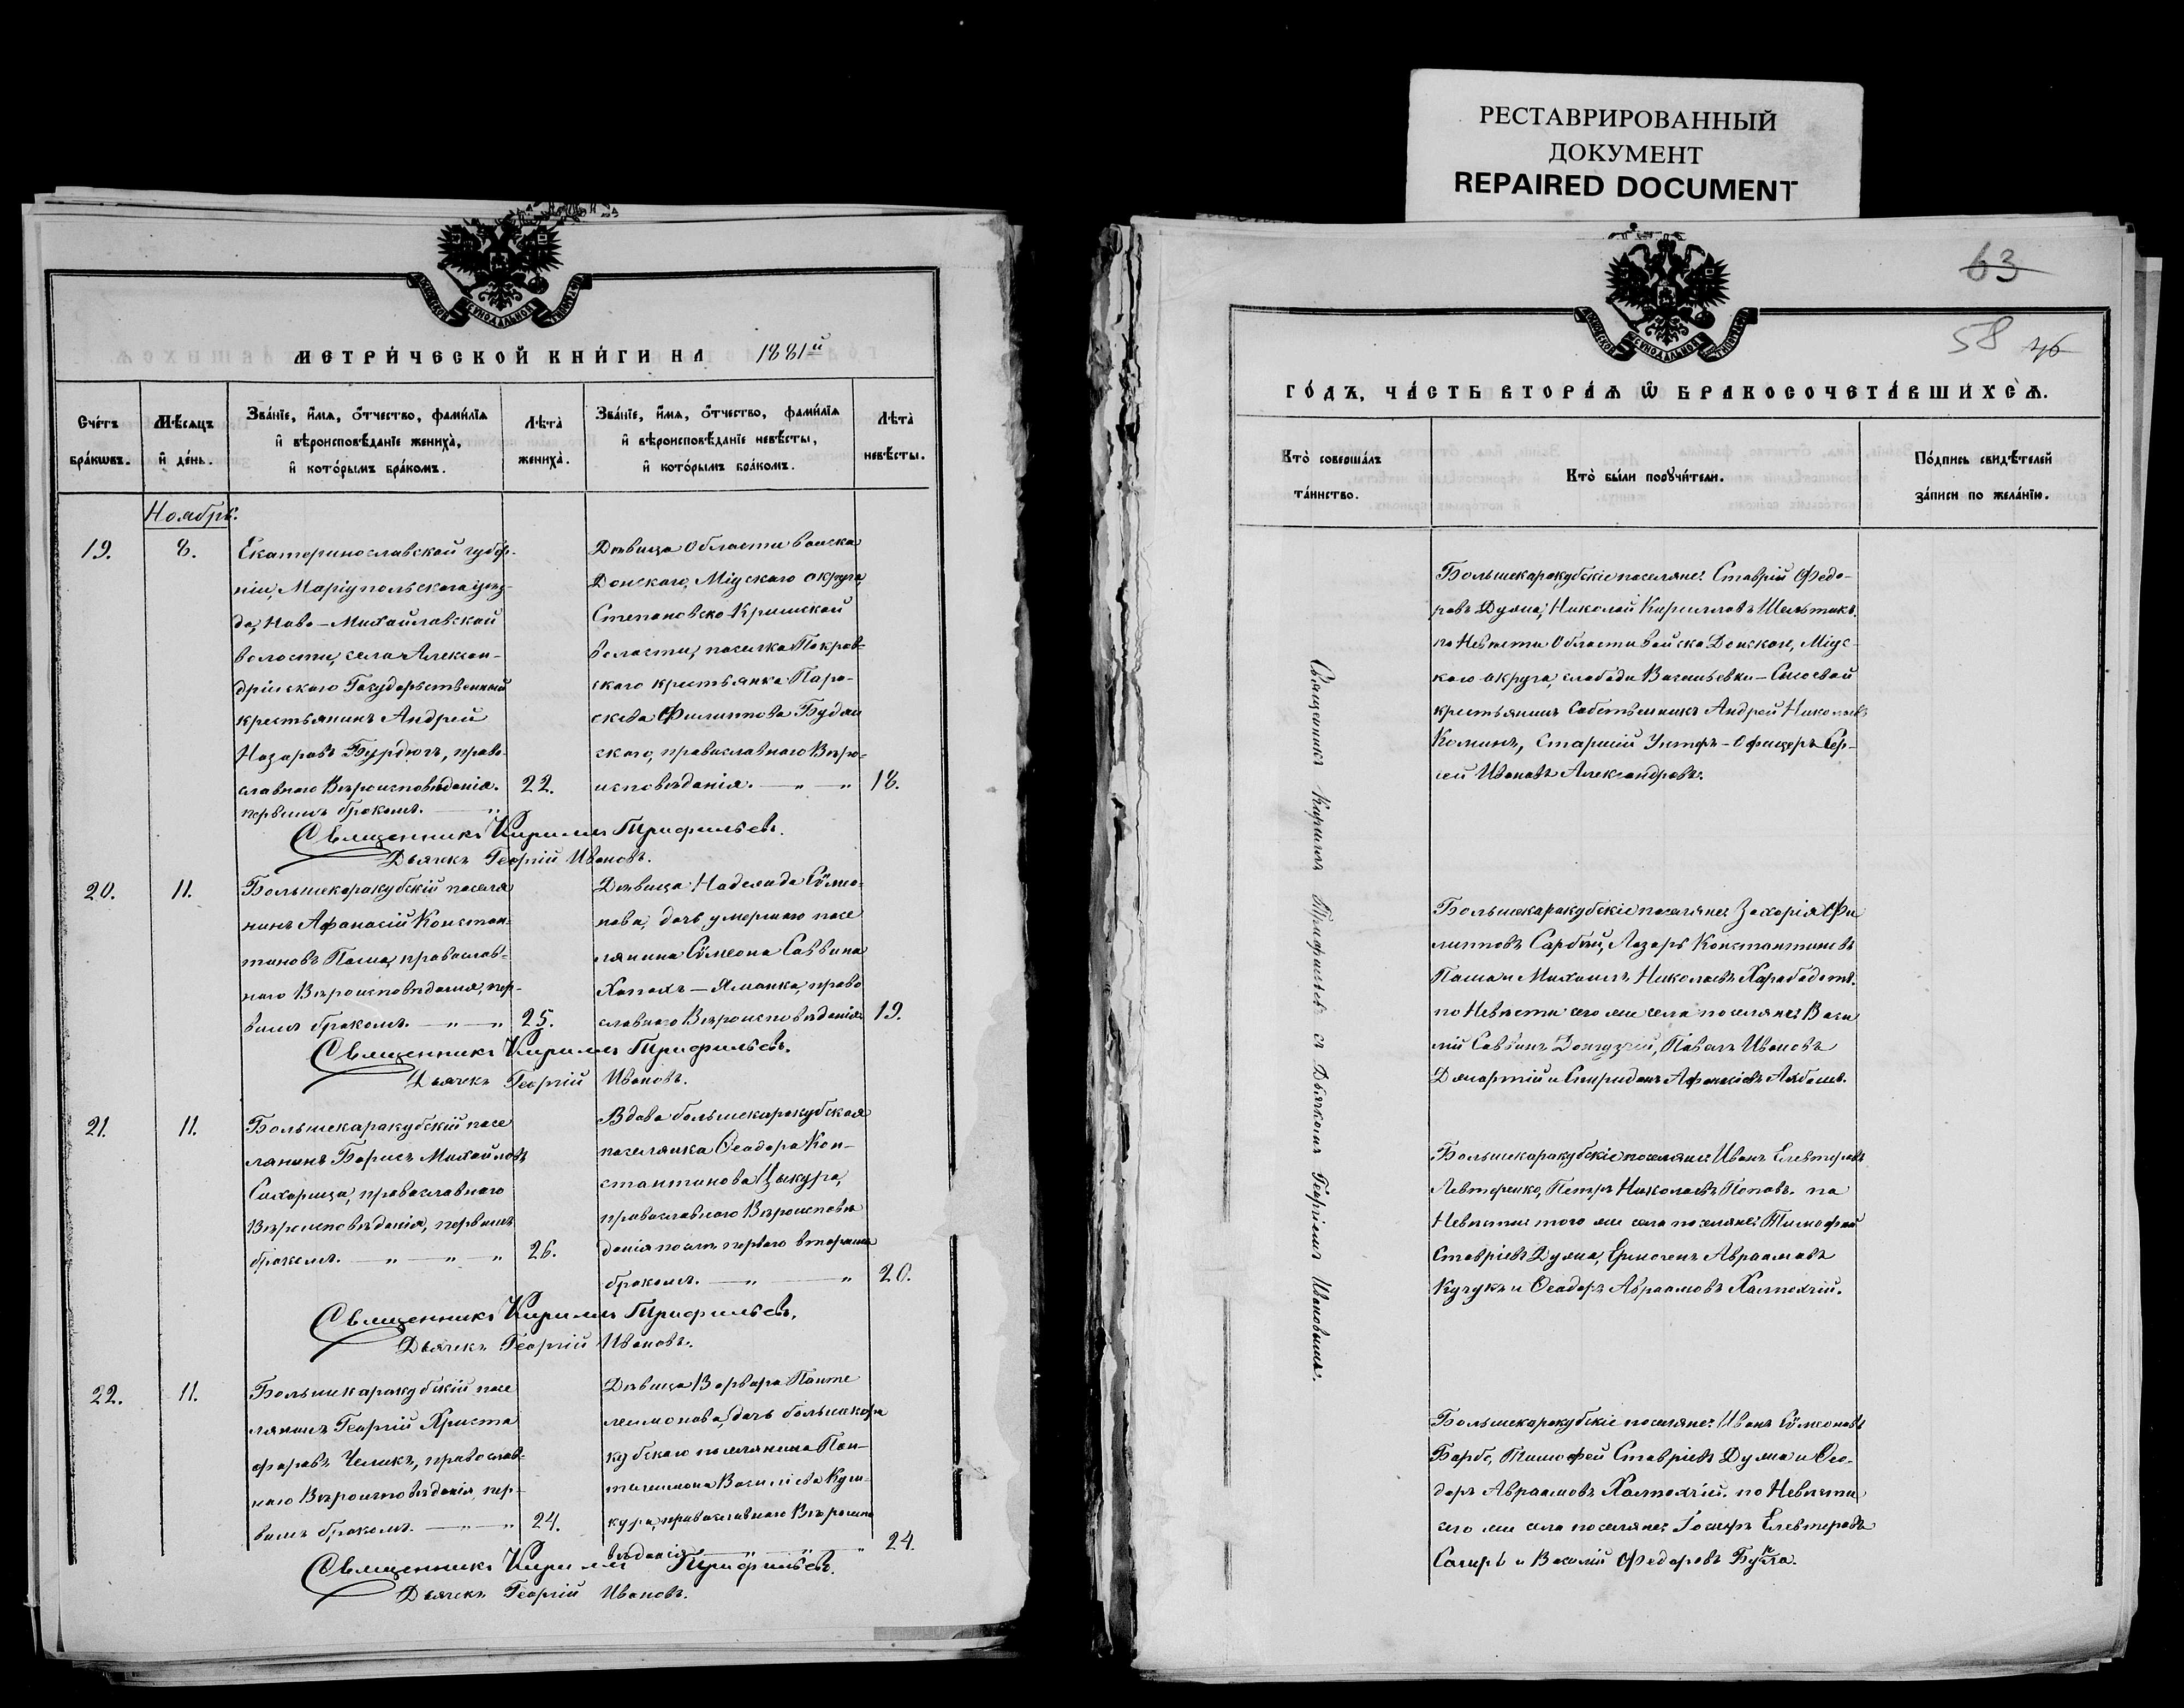 РЕСТАВРИРОВАННЫЙ
ДОКУМЕНТ
REPAIRED DOCUMENT
МЕТРИ́ЧЕСКОЙ КНИ́ГИ НА 1881й
Сче́тъ бра́кѡвъ.
Мѣ́сяцъ и҆ де́нь.
Зва́нїе, и҆́мя, ѻ҆́тчество, фами́лїя
и҆ вѣроисповѣ́данїе жениха̀,
и҆ кото́рымъ бра́комъ.
Лѣта̀ жениха̀.
Зва́нїе, и҆́мя, ѻ҆́тчество, фами́лїя
и҆ вѣроисповѣ́данїе невѣ́сты,
и҆ кото́рымъ бра́комъ.
Лѣта̀ невѣ́сты.
Ноябрь.
19.
8.
Екатеринославской губер-
ніи, Маріупольскаго уѣз-
да, Ново-Михайловской
волости, села Алексан-
дрійскаго Государственный
крестьянинъ Андрей
Назаровъ Бурдюгъ, право-
славнаго Вѣроисповѣданія.
первымъ бракомъ.
22.
Дѣвица Области войска
Донскаго, Міускаго округа,
Степановско-Крынской
волости, поселка Покров-
скаго крестьянка Пара-
скева Филиппова Будян
скаго, православнаго Вѣро-
исповѣданія.
18.
Священникъ Кириллъ Трифильевъ.
Дьячекъ Георгій Ивановъ.
20.
11.
Большекаракубскій поселя
нинъ Афанасій Констан-
тиновъ Паша, православ-
наго Вѣроисповѣданія, пер-
вымъ бракомъ.
25.
Дѣвица Надежда Сѵмео-
нова, дочь умершаго посе
лянина Сѵмеона Саввина
Хапахъ-Яманка, право
славнаго Вѣроисповѣданія
19.
Священникъ Кириллъ Трифильевъ.
Дьячекъ Георгій Ивановъ.
21.
11.
Большекаракубскій посе
лянинъ Борисъ Михайловъ
Сахарица, православнаго
Вѣроисповѣданія, первымъ
бракомъ.
26.
Вдова большекаракубская
поселянка Ѳеодора Кон-
стантинова Цыкура,
православнаго Вѣроисповѣ
данія послѣ перваго вторымъ
бракомъ.
20.
Священникъ Кириллъ Трифильевъ.
Дьячекъ Георгій Ивановъ.
22.
11.
Большекаракубскій посе
лянинъ Георгій Христо
форовъ Челикъ, православ-
наго Вѣроисповѣданія, пер-
вымъ бракомъ.
24.
Дѣвица Варвара Панте
леимонова, дочь большекара
кубскаго поселянина Пан-
телеимона Василіева Куш-
кура, православнаго Вѣроиспо
вѣданія
24.
Священникъ Кириллъ Трифильевъ.
Дьячекъ Георгій Ивановъ.
63
58
ГО́ДЪ, ЧА́СТЬ ВТОРА́Я Ѡ҆ БРАКОСОЧЕТА́ВШИХСѦ.
Кто̀ соверша́лъ та́инство.
Кто̀ бы́ли порꙋчи́тели.
По́дпись свидѣ́телей за́писи по жела́нїю.
Священникъ Кириллъ Трифильевъ съ Дьячкомъ Георгіемъ Ивановымъ.
Большекаракубскіе поселяне: Ставрій Федо-
ровъ Дума, Николай Кирилловъ Шельтикъ.
по Невѣсти Области войска Донскаго, Міус-
каго округа, слободы Васильевки-Сысоевой
крестьянинъ Собственникъ Андрей Николаевъ
Коминъ, Старшій Унтеръ-Офицеръ Сер-
гей Ивановъ Александровъ.
Большекаракубскіе поселяне: Захарія Фи
липповъ Сарбаш, Лазарь Константиновъ
Паша и Михаилъ Николаевъ Харабаджи.
по Невѣсти сего же села поселяне: Васи
лій Саввинъ Донгузгій, Павелъ Ивановъ
Джартій и Спиридонъ Афанасіевъ Акбашъ.
Большекаракубскіе поселяне: Иванъ Елевтеровъ
Левтеренко, Петръ Николаевъ Поповъ. по
Невѣсти того же села поселяне: Тимофей
Ставріевъ Дума, Ермогенъ Авраамовъ
Кучукъ и Ѳеодоръ Авраамовъ Халтахчій.
Большекаракубскіе поселяне: Иванъ Сѵмеоновъ
Барбо, Тимофей Ставріевъ Дума и Ѳео-
доръ Авраамовъ Халтахчій. по Невѣсти
сего же села поселяне: Іосифъ Елевтеровъ
Сагиръ и Василій Федоровъ